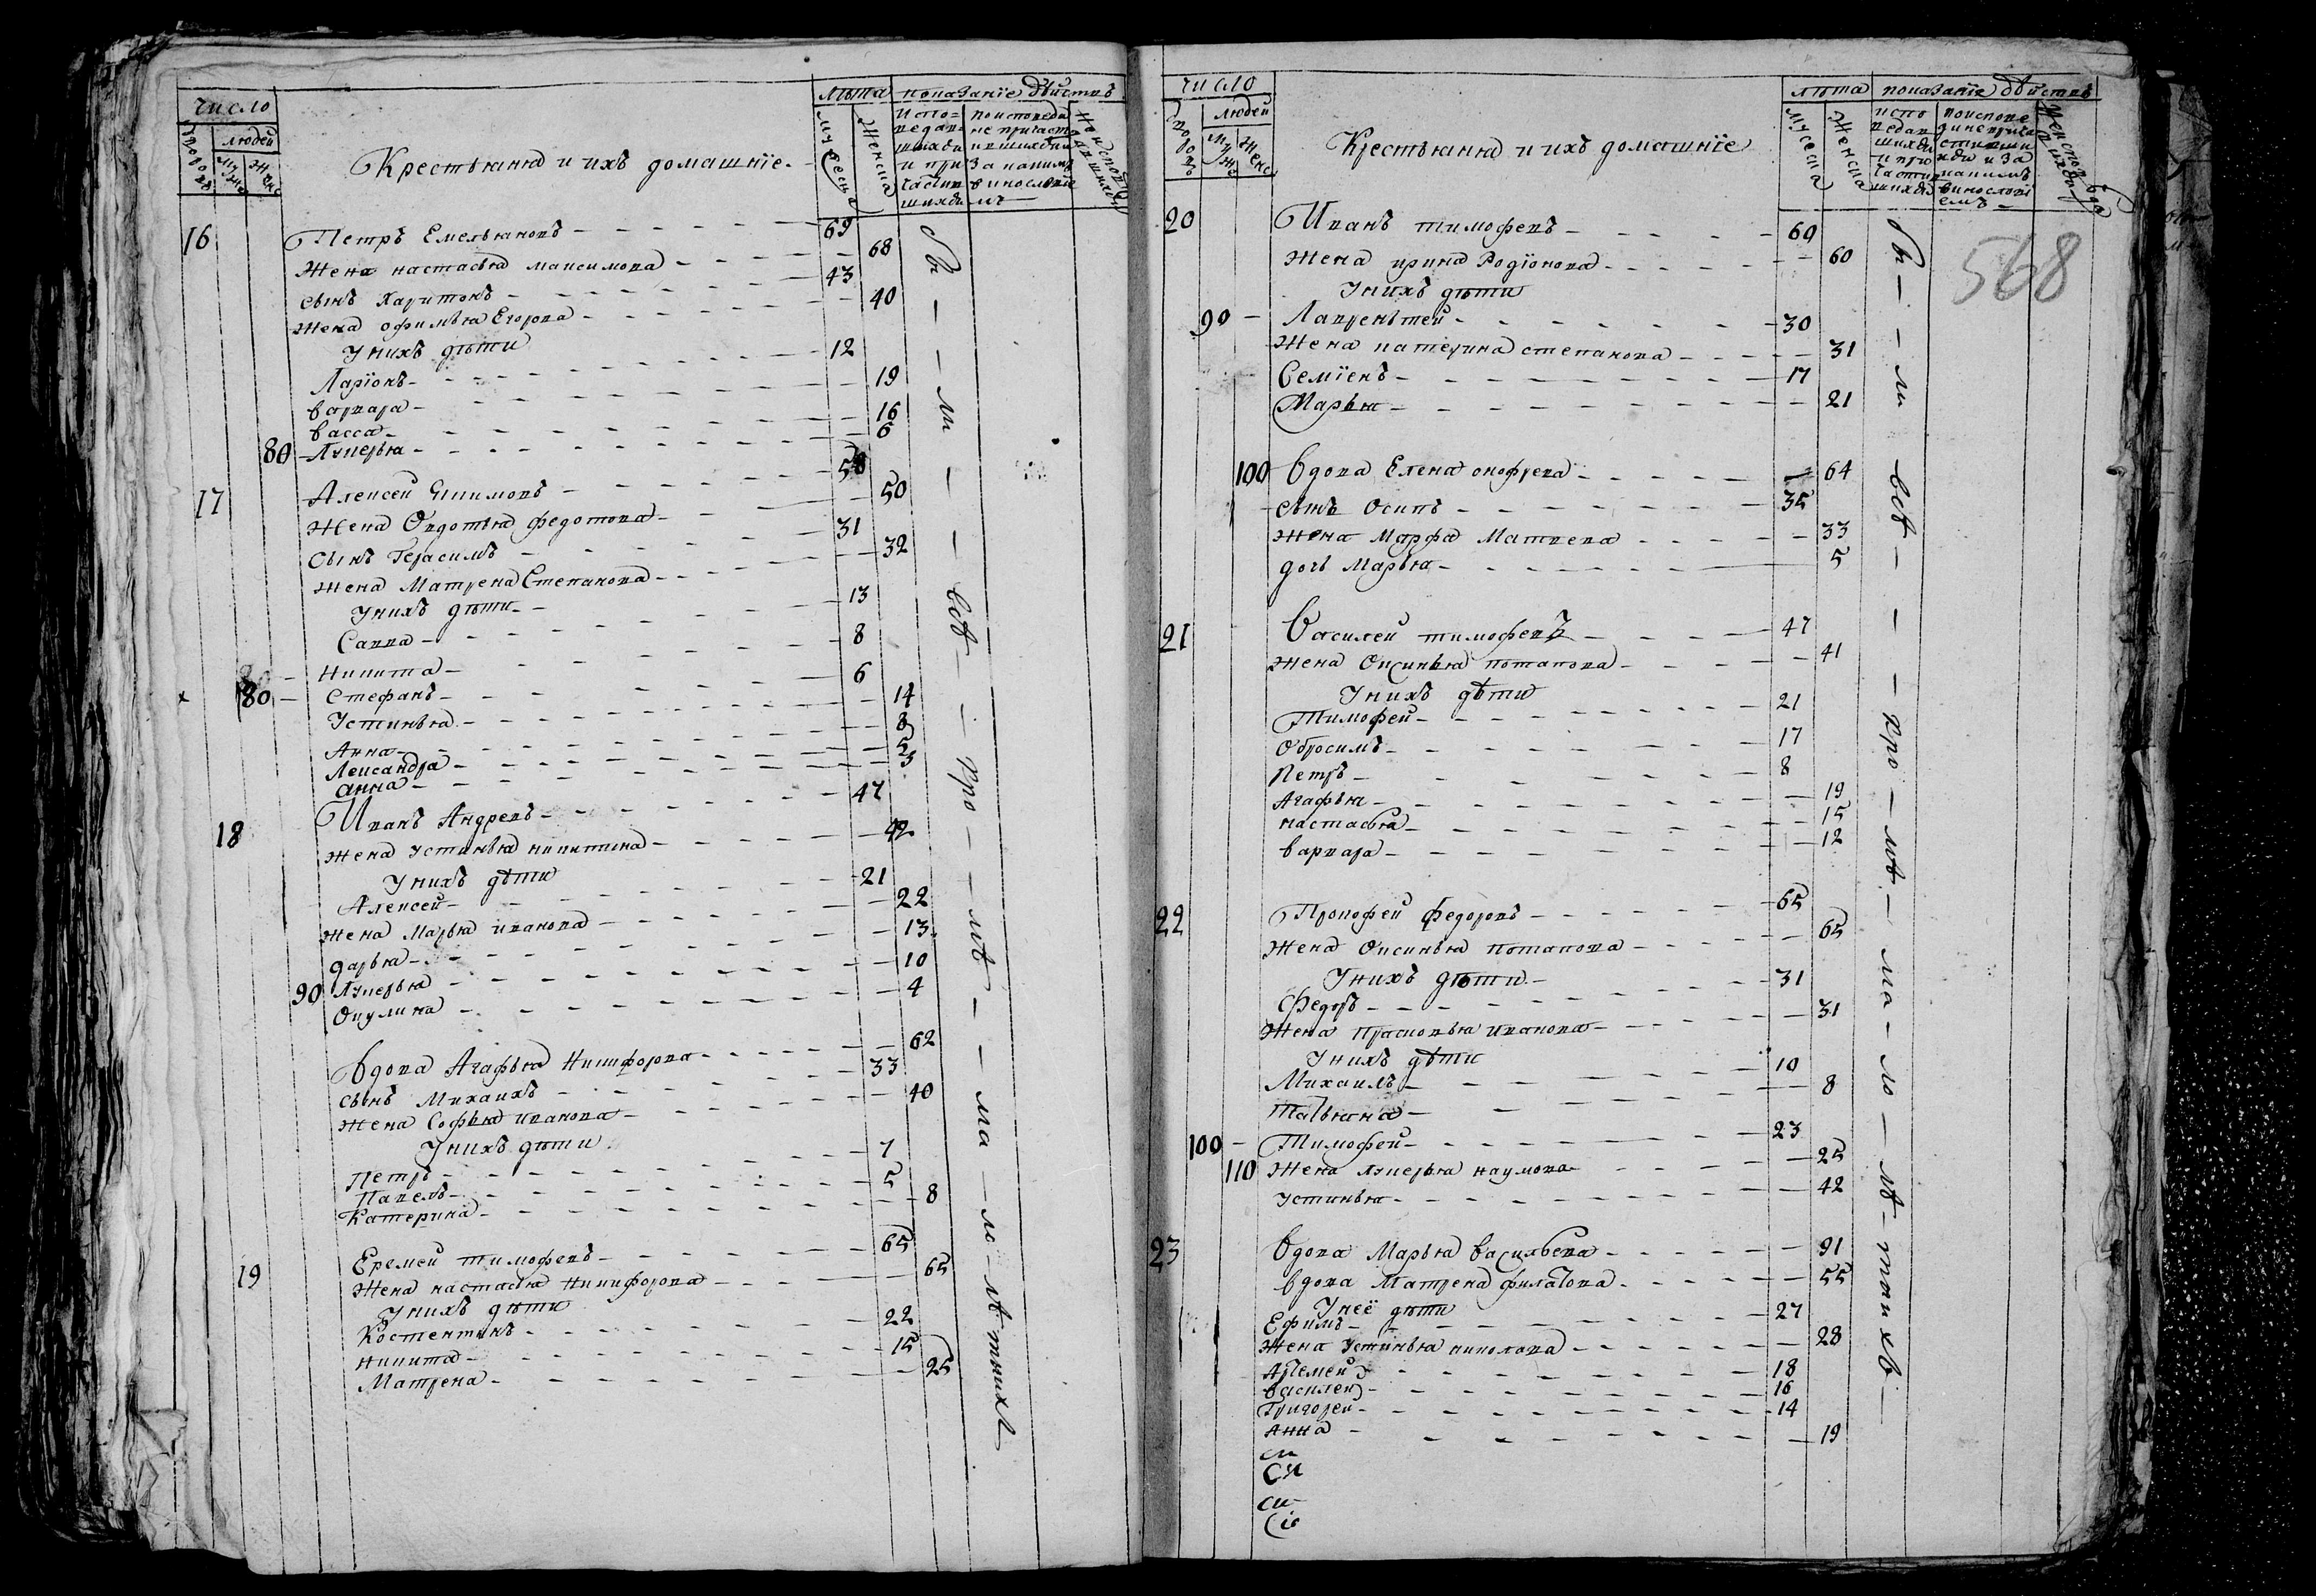 число
людей
Крестьяня и ихъ домашнїе
лѣта
показанїе дѣйствъ
мужеска
Женска
16 Петръ Емельяновъ 69
Жена настасья максимова 68
сынъ Харитонъ 43
Жена офимья Егорова 40
Унихъ дѣти
Ларїонъ 12
варвара 19
васса 16
80 Лукерья 6
17 Алексей Якимовъ 50
Жена Овдотья федотова 50
Сынъ Герасимъ 31
Жена Матрена Степанова 32
Унихъ дѣти
Савва 13
Никита 8
80 Стефанъ 6
Устинья 14
Анна 8
Лександра 5
анна 3
18 Иванъ Андреевъ 47
Жена Устинья никитина 42
Унихъ дѣти
Алексей 21
Жена Марья иванова 22
дарья 13
90 Лукерья 10
Окулина 4
Вдова Агафья Никифорова 62
сынъ Михаилъ 33
Жена Софья иванова 40
Унихъ дѣти
Петръ 7
Павелъ 5
Катерина 8
19 Еремей тимофеевъ 65
Жена настасья Никифорова 65
Унихъ дѣти
Костентинъ 22
никита 15
Матрена 25
бы ли всѣ кро мѣ ма ло лѣтнихъ
число
людей
Крестьяня и ихъ домашнїе
лѣта
показанїе дѣйствъ
мужеска
Женска
568
20 Иванъ тимофевъ 60
Жена ирина Родїонова 60
Унихъ дѣти
90 Лаврентей 30
Жена катерина степанова 31
Семїенъ 17
Марья 21
100 Вдова Елена онофрева 64
сынъ Осипъ 35
Жена Марфа Матвеева 33
дочь Марья 5
21 Василей тимофевъ 47
Жена Оксинья потапова 41
Унихъ дѣти
Тимофей 21
Обросимъ 17
Петръ 8
Агафья 19
настасья 15
варвара 12
22 Прокофей федоровъ 65
Жена Оксинья потапова 65
Унихъ дѣти
Федоръ 31
Жена Прасковья иванова 31
Унихъ дѣти
Михаилъ 10
Татьяна 8
100 Тимофей 23
110 Жена лукерья наумова 25
устинья 42
23 Вдова Марья Васильева 91
вдова Матрена филатова 55
Унеё дѣти
Ефимъ 27
Жена Устинья николаева 28
Артемей 18
Василей 16
Григорей 14
Анна 19
бы ли всѣ кро мѣ ма ло лѣ тнихъ